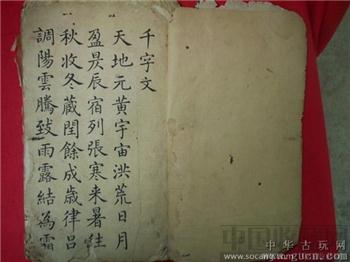 千字文
天地元黄宇宙洪荒日月
盈昃辰宿列張寒来暑往
秋收冬藏閏餘成歲律呂
調陽雲騰致雨露結為霜
中华古玩网